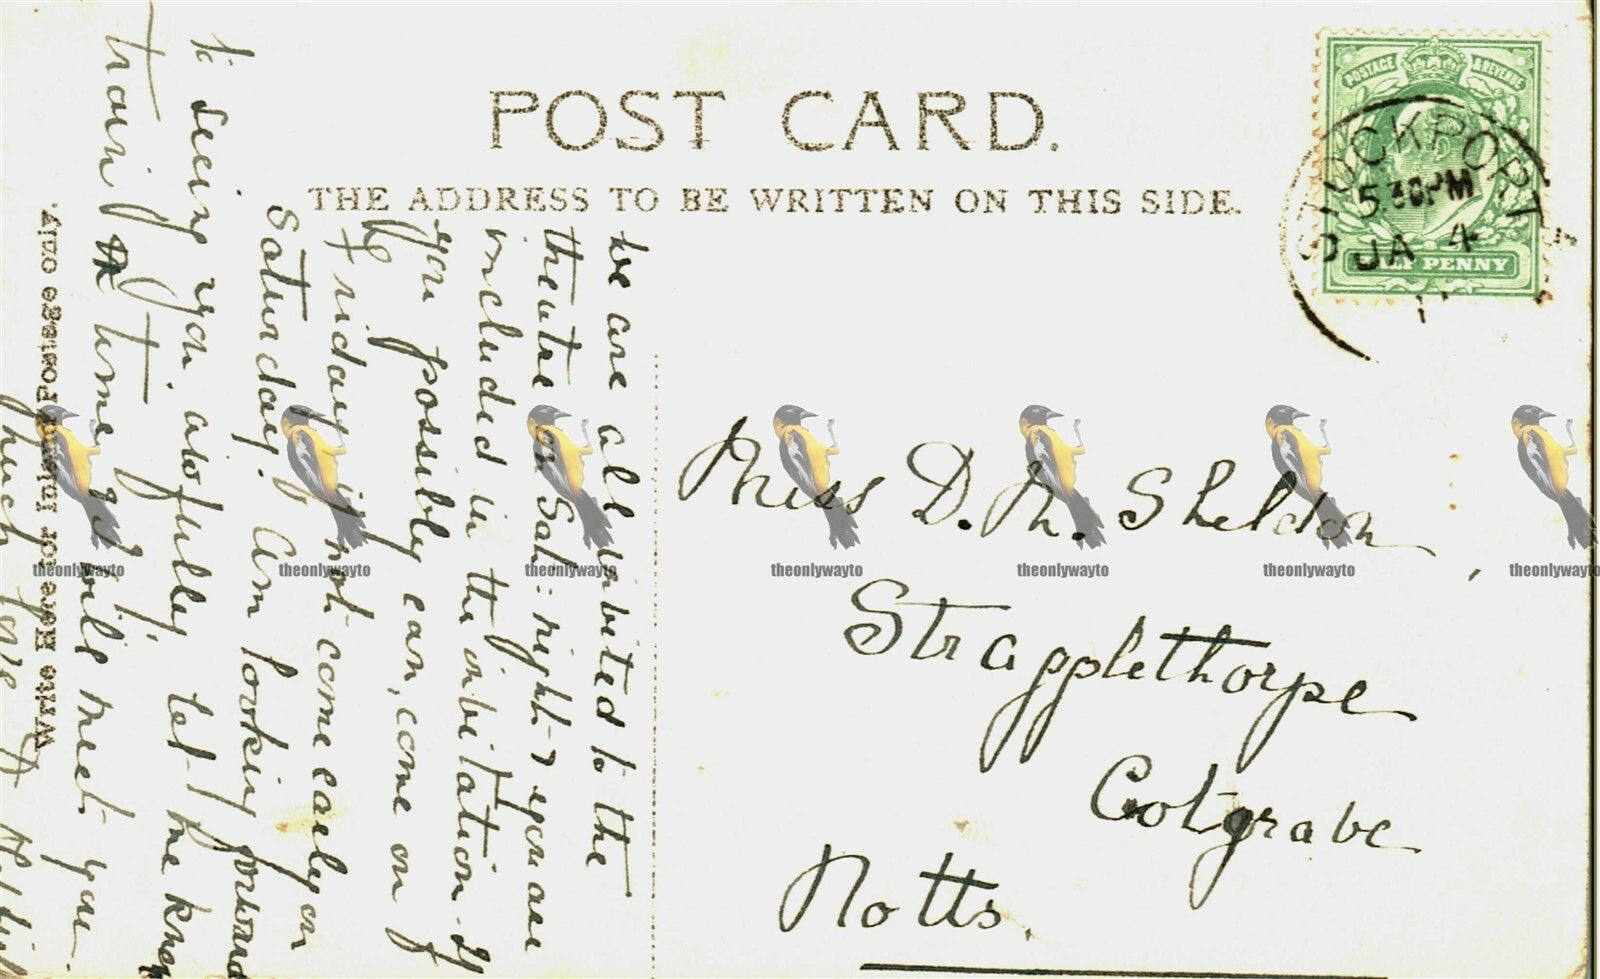 POST CARD.
THE ADDRESS TO BE WRITTEN ON THIS SIDE.
POSTAGE & REVENUE
HALF PENNY
STOCKPORT
5 30PM
JA 4
11
we are all invited to the
theatre on Sat: night & you are
included in the invitation. If
you possibly can, come on
Friday if not come early on
Saturday. Am looking forward
to seeing you awfully, let me know
train & time & I will meet you.
Much love
Write Here for Inland Postage only.
Miss D. M. Sheldon
Stragglethorpe
Cotgrave
Notts.
theonlywayto
theonlywayto
theonlywayto
theonlywayto
theonlywayto
theonlywayto
theonlywayto